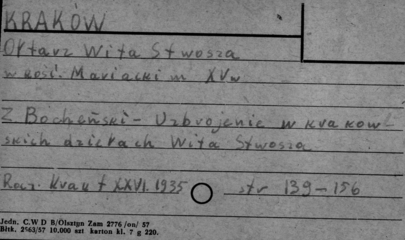 KRAKÓW
Ołtarz Wita Stwosza
w kośc. Mariackim XVw
Z Bocheński - Uzbrojenie w krakow-
skich dziełach Wita Stwosza
Rocz. Krak t XXVI. 1935 str 139-156
Jedn. C.W D B/Olsztyn Zam 2776/on/ 57
Bltk. 2563/57 10,000 szt karton kl. 7 g 220.